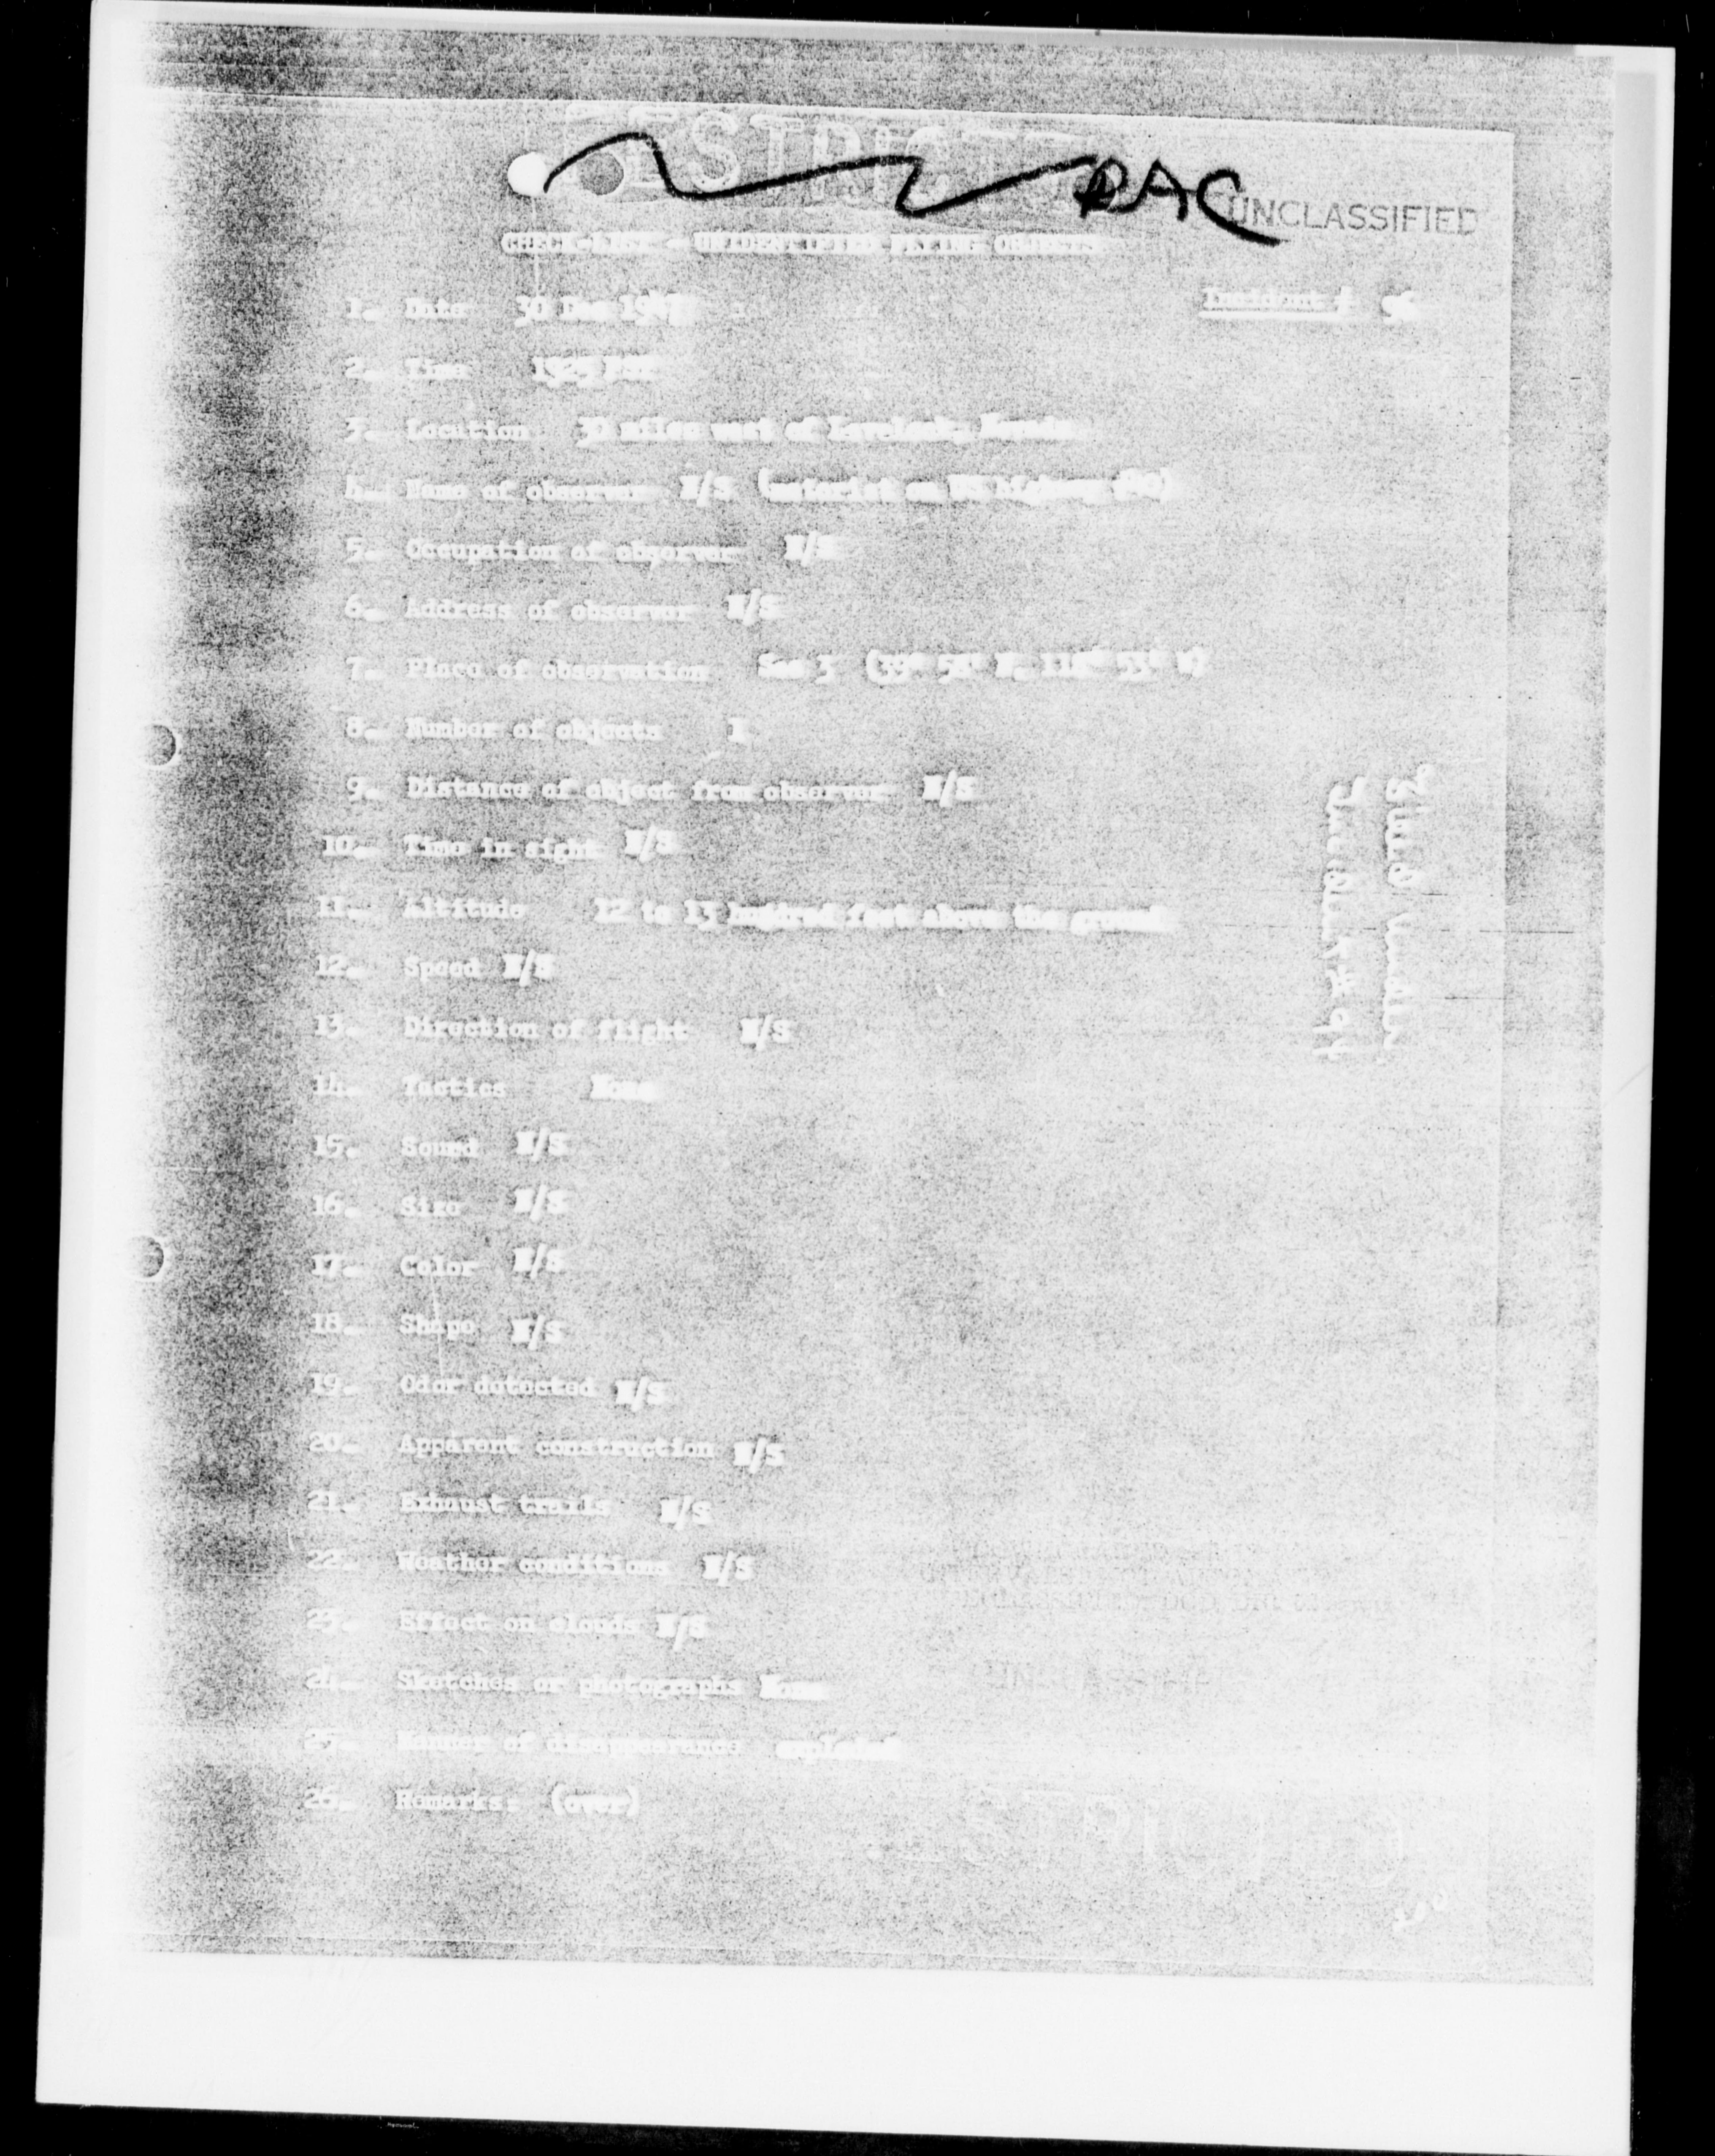 RESTRICTED
RAC
UNCLASSIFIED
CHECK-LIST - UNIDENTIFIED FLYING OBJECTS
1. Date 30 Dec 194 Incident #
2. Time 1525 hour
3. Location 30 miles west of Lovelock, Nevada
4. Name of observer N/S (motorist on US highway #40)
5. Occupation of observer N/S
6. Address of observer N/S
7. Place of observation See 3
8. Number of objects 1
9. Distance of object from observer N/S
10. Time in sight N/S
11. Altitude 12 to 13 hundred feet above the ground
12. Speed N/S
13. Direction of flight N/S
14. Tactics None
15. Sound N/S
16. Size N/S
17. Color N/S
18. Shape N/S
19. Odor detected N/S
20. Apparent construction N/S
21. Exhaust trails N/S
22. Weather conditions N/S
23. Effect on clouds N/S
24. Sketches or photographs None
25. Manner of disappearance exploded
26. Remarks: (over)
UNCLASSIFIED
RESTRICTED